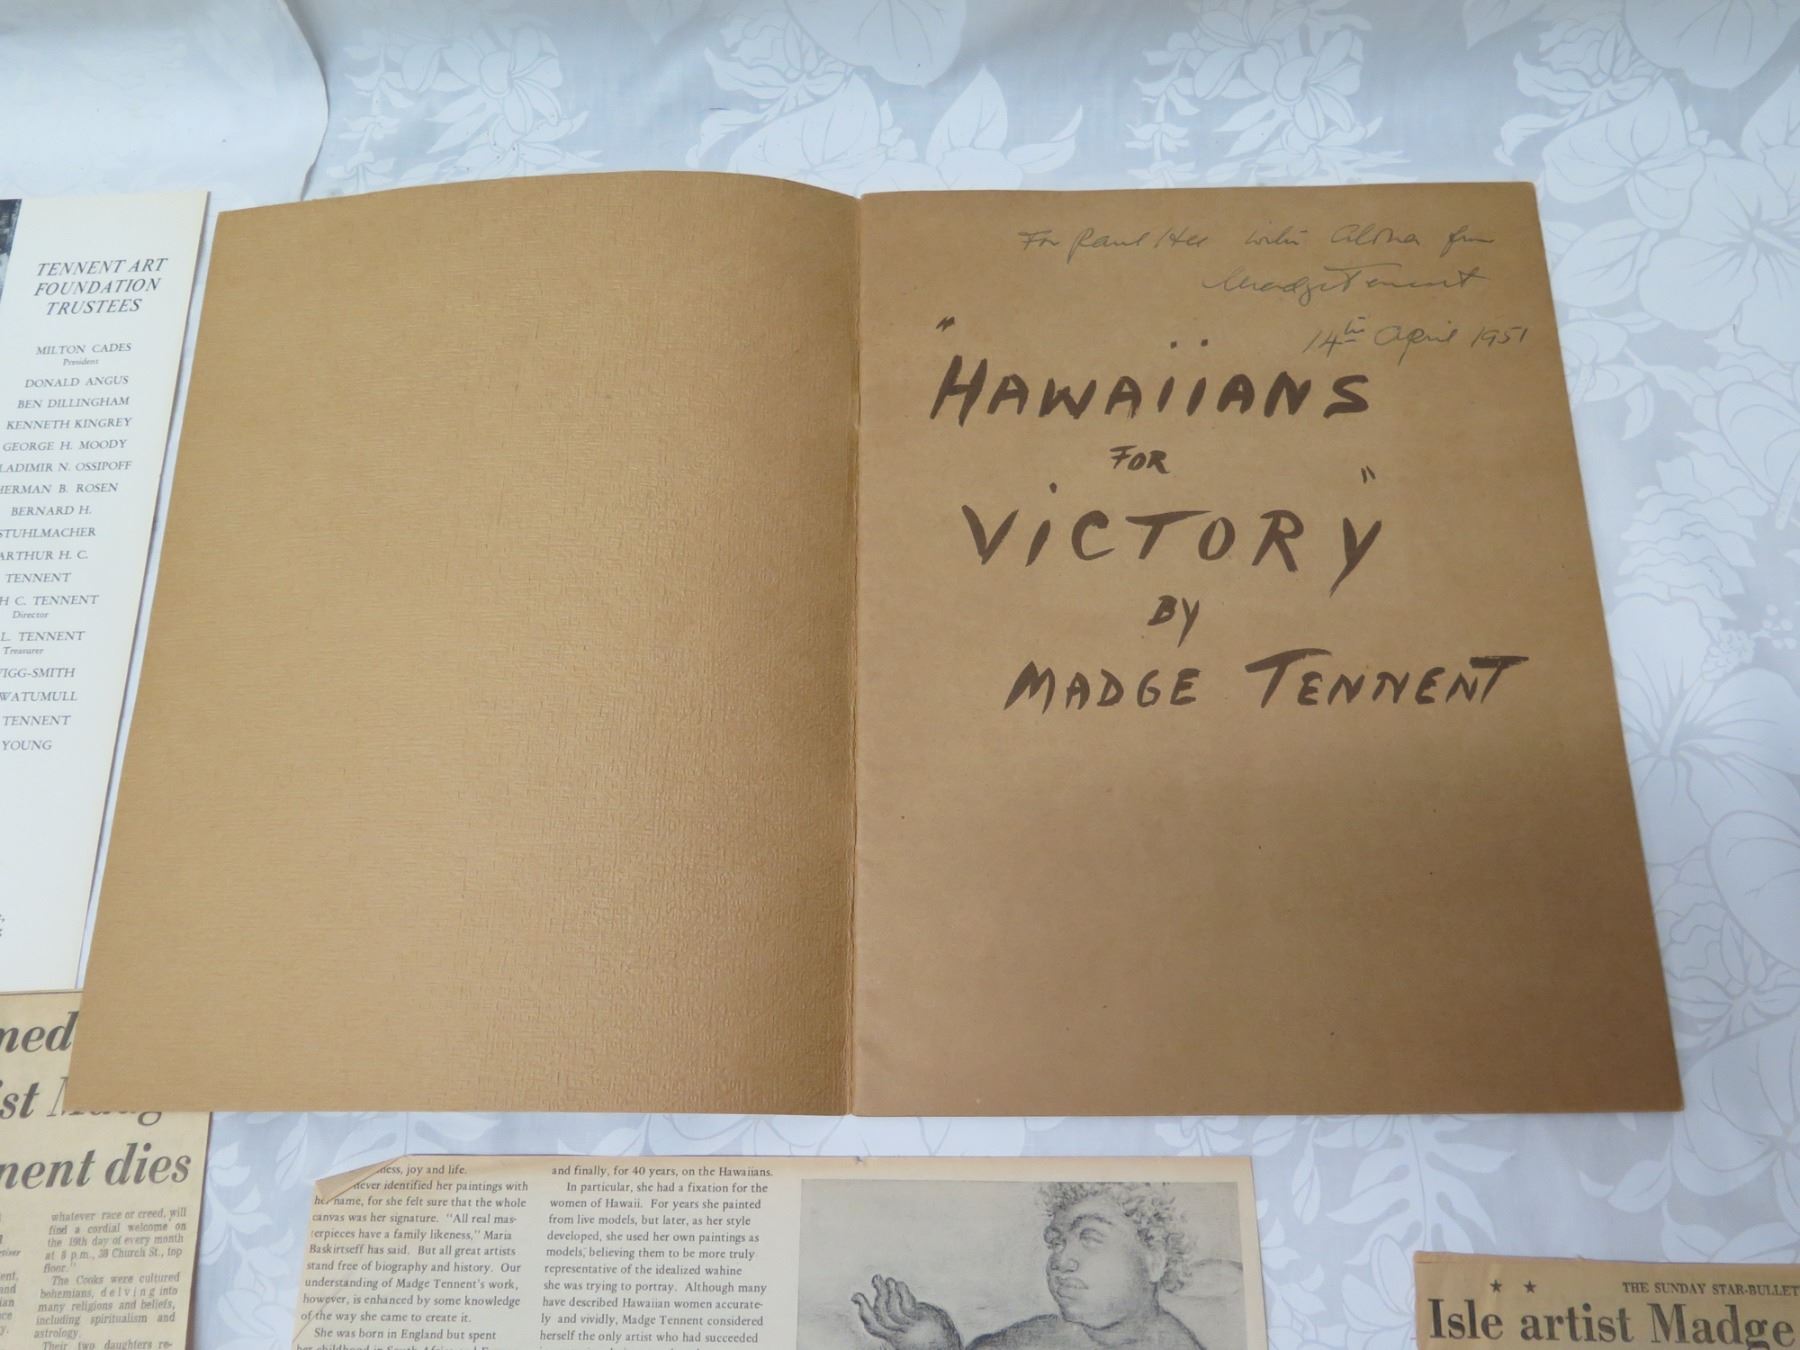 TENNENT ART
FOUNDATION
TRUSTEES
MILTON CADES
President
DONALD ANGUS
BEN DILLINGHAM
KENNETH KINGREY
GEORGE H. MOODY
LADIMIR N. OSSIPOFF
HERMAN B. ROSEN
BERNARD H.
STUHLMACHER
ARTHUR H. C.
TENNENT
H C. TENNENT
Director
L. TENNENT
Treasurer
IGG-SMITH
WATUMULL
TENNENT
YOUNG
For Paul with Aloha from
Madge Tennent
14th April 1951
"HAWAiiANS
FOR
ViCTORY"
BY
MADGE TENNENT
med
ist Madg
nent dies
whatever race or creed, will
find a cordial welcome on
the 19th day of every month
at 8 p.m., 38 Church St., top
floor."
The Cooks were cultured
bohemians, delving into
many religions and beliefs,
including spiritualism and
astrology.
Their two daughters re-
ness, joy and life.
never identified her paintings with
her name, for she felt sure that the whole
canvas was her signature. "All real mas-
terpieces have a family likeness," Maria
Baskirtseff has said. But all great artists
stand free of biography and history. Our
understanding of Madge Tennent's work,
however, is enhanced by some knowledge
of the way she came to create it.
She was born in England but spent
her childhood in South Africa and
and finally, for 40 years, on the Hawaiians.
In particular, she had a fixation for the
women of Hawaii. For years she painted
from live models, but later, as her style
developed, she used her own paintings as
models, believing them to be more truly
representative of the idealized wahine
she was trying to portray. Although many
have described Hawaiian women accurate-
ly and vividly, Madge Tennent considered
herself the only artist who had succeeded
★ ★ THE SUNDAY STAR-BULLET
Isle artist Madge